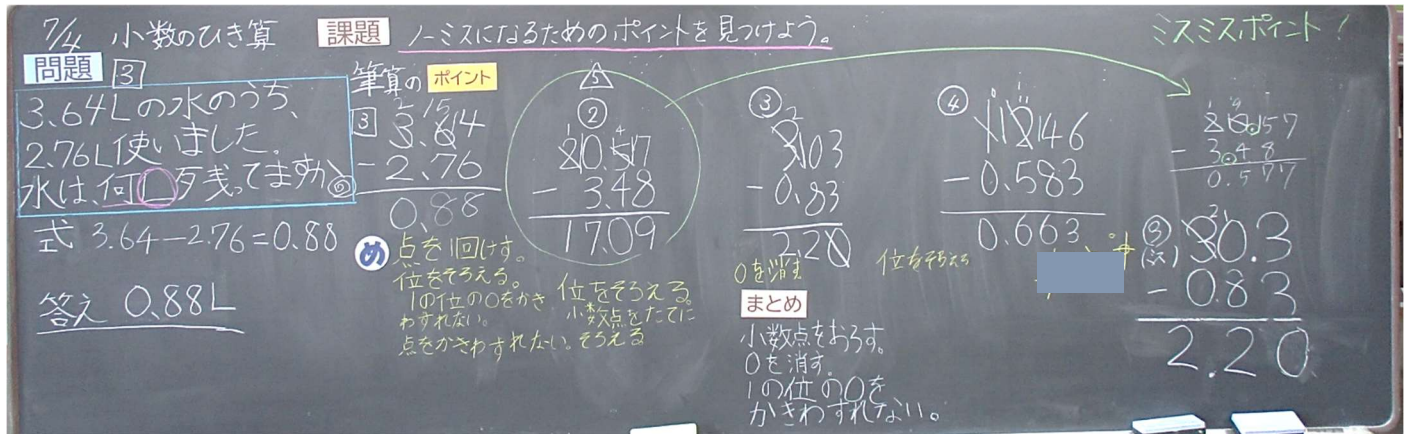 7/4 小数のひき算
課題 ノーミスになるためのポイントを見つけよう。
ミスミスポイント!
問題 3
3.64Lの水のうち、
2.76L使いました。
水は、何L残ってますか。
式 3.64-2.76=0.88
答え 0.88L
筆算の ポイント
3
2 15
3.64
- 2.76
0.88
め 点を1回けす。
位をそろえる。
1の位の0をかき
わすれない。
点をかきわすれない。
5
②
20.57
- 3.48
17.09
位をそろえる。
小数点をたてに
そろえる
③
3.03
- 0.83
2.20
0を消す
まとめ
小数点をおろす。
0を消す。
1の位の0を
かきわすれない。
④
1.246
- 0.583
0.663
位をそろえる
20.57
- 3.48
0.577
③
30.3
- 0.83
2.20